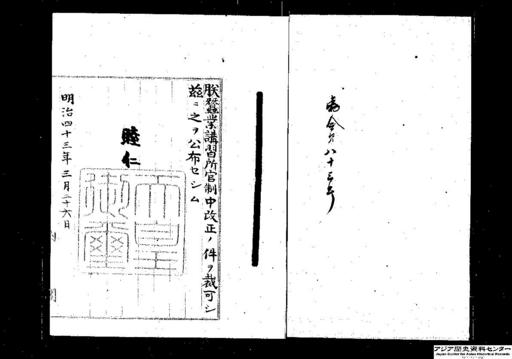 勅令第八十三号
朕蚕業講習所官制中改正ノ件ヲ裁可シ
茲ニ之ヲ公布セシム
睦仁
天皇御璽
明治四十三年三月二十六日
アジア歴史資料センター
Japan Center for Asian Historical Records